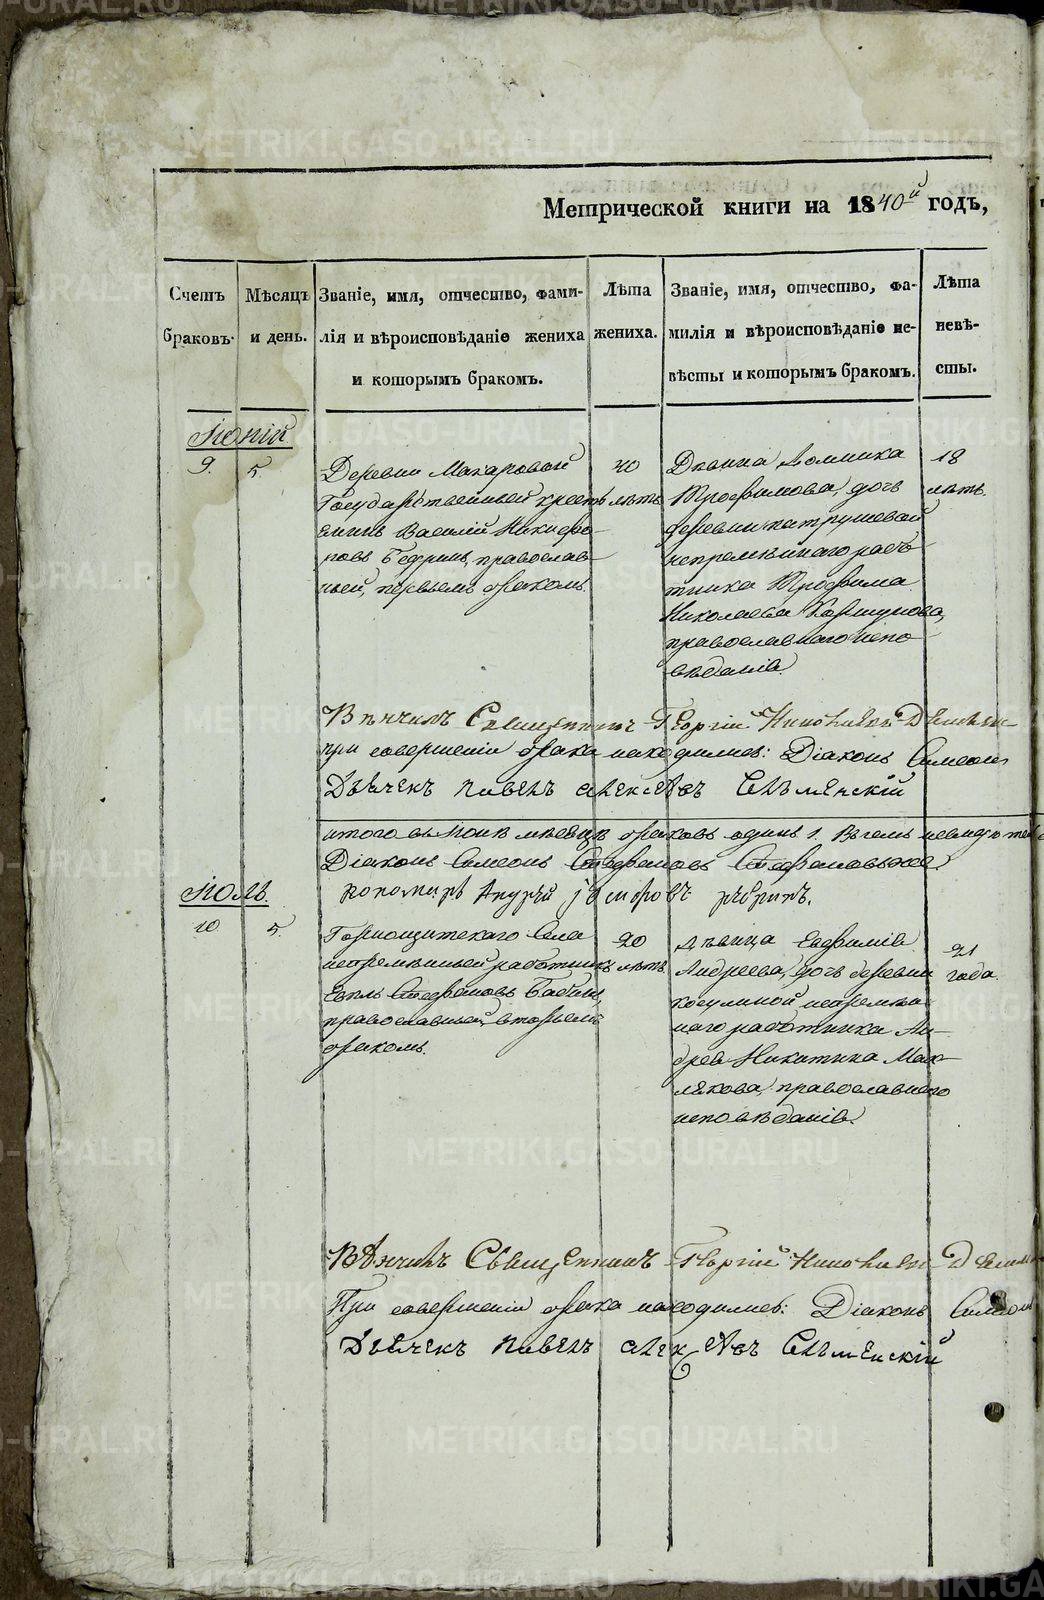 Метрической книги на 1840й годъ,
Счетъ браковъ.
Мѣсяцъ и день.
Званіе, имя, отчество, фами-
лія и вѣроисповѣданіе жениха
и которымъ бракомъ.
Лѣта жениха.
Званіе, имя, отчество, фа-
милія и вѣроисповѣданіе не-
вѣсты и которымъ бракомъ.
Лѣта невѣ-
сты.
Іюній
9. 5.
Деревни Макаровой
Государственный кресть
янинъ Василій Никифо
ровъ Бедринъ, православ
ный, первымъ бракомъ.
20
лѣтъ
Дѣвица Домника
Трофимова, дочь
деревни патрушевой
непремѣннаго рабо
тника Трофима
Николаева Коршунова,
православнаго испо
вѣданія.
18
лѣтъ.
Вѣнчилъ Священникъ Георгій
при совершеніи брака находились: Діаконъ Симеонъ
Дьячекъ Павелъ Алексѣевъ
итого въ Іюнѣ мѣсяцѣ браковъ одинъ 1.
Діаконъ Симеонъ Стефановъ
пономарь Андрей
Іюль.
10 5.
Горнощитскаго Села
непремѣнный работникъ
Евплъ Стефановъ Бабинъ,
православный, вторымъ
бракомъ.
20
лѣтъ
дѣвица Евфимія
Андреева, дочь деревни
косулиной непремѣн
наго работника Ан-
дрея Никитина Мас-
лякова, православнаго
исповѣданія.
21
года.
Вѣнчилъ Священникъ Георгій
При совершеніи брака находились: Діаконъ Симеонъ
Дьячекъ Павелъ Алексѣевъ